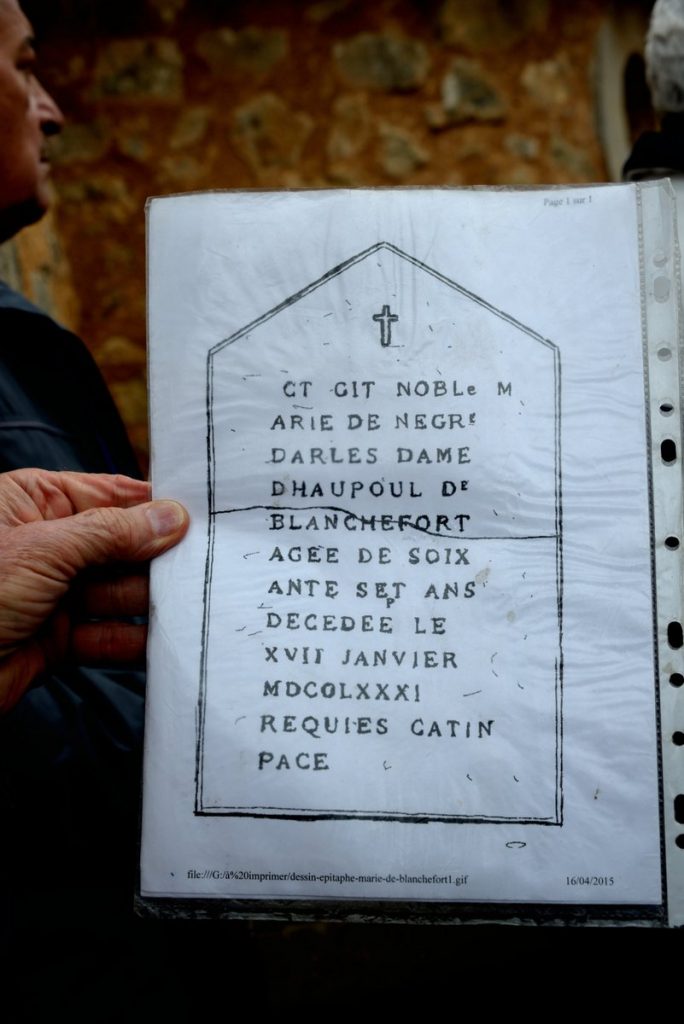 Page 1 sur 1
CT GIT NOBLe M
ARIE DE NEGRe
DARLES DAME
DHAUPOUL DE
BLANCHEFORT
AGEE DE SOIX
ANTE SEpT ANS
DECEDEE LE
XVII JANVIER
MDCOLXXXI
REQUIES CATIN
PACE
file:///G:/à%20imprimer/dessin-epitaphe-marie-de-blanchefort1.gif
16/04/2015